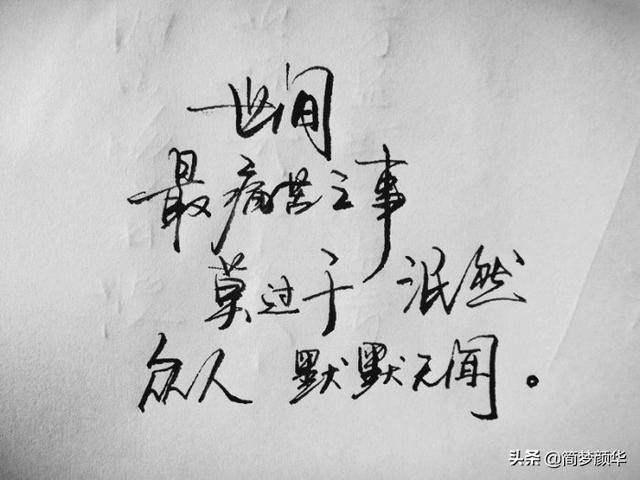 世间
最痛苦之事
莫过于 泯然
众人 默默无闻。
头条 @简梦颜华